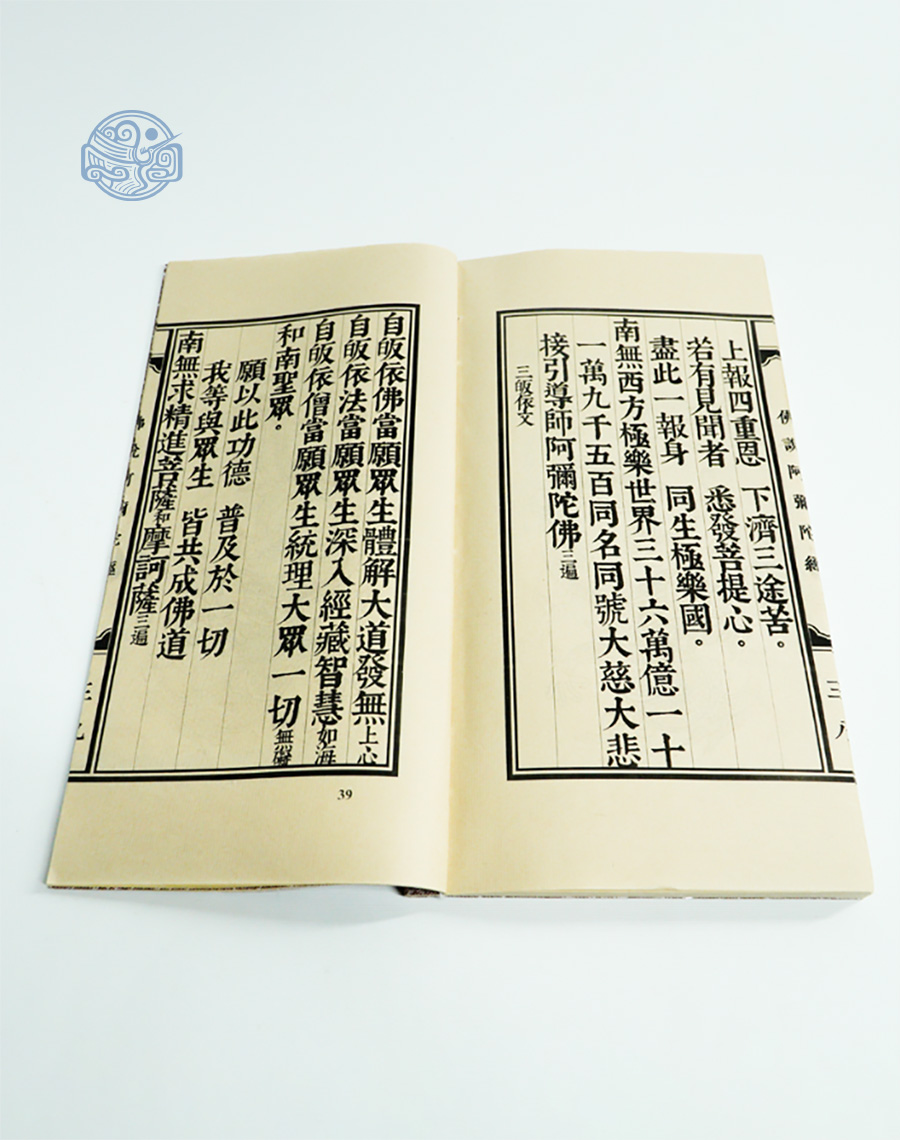 佛說阿彌陀經 三八
上報四重恩 下濟三途苦。
若有見聞者 悉發菩提心。
盡此一報身 同生極樂國。
南無西方極樂世界三十六萬億一十
一萬九千五百同名同號大慈大悲
接引導師阿彌陀佛三遍
三皈依文
自皈依佛當願眾生體解大道發無上心
自皈依法當願眾生深入經藏智慧如海
自皈依僧當願眾生統理大眾一切無礙
和南聖眾。
願以此功德 普及於一切
我等與眾生 皆共成佛道
南無求精進菩薩和摩訶薩三遍
39